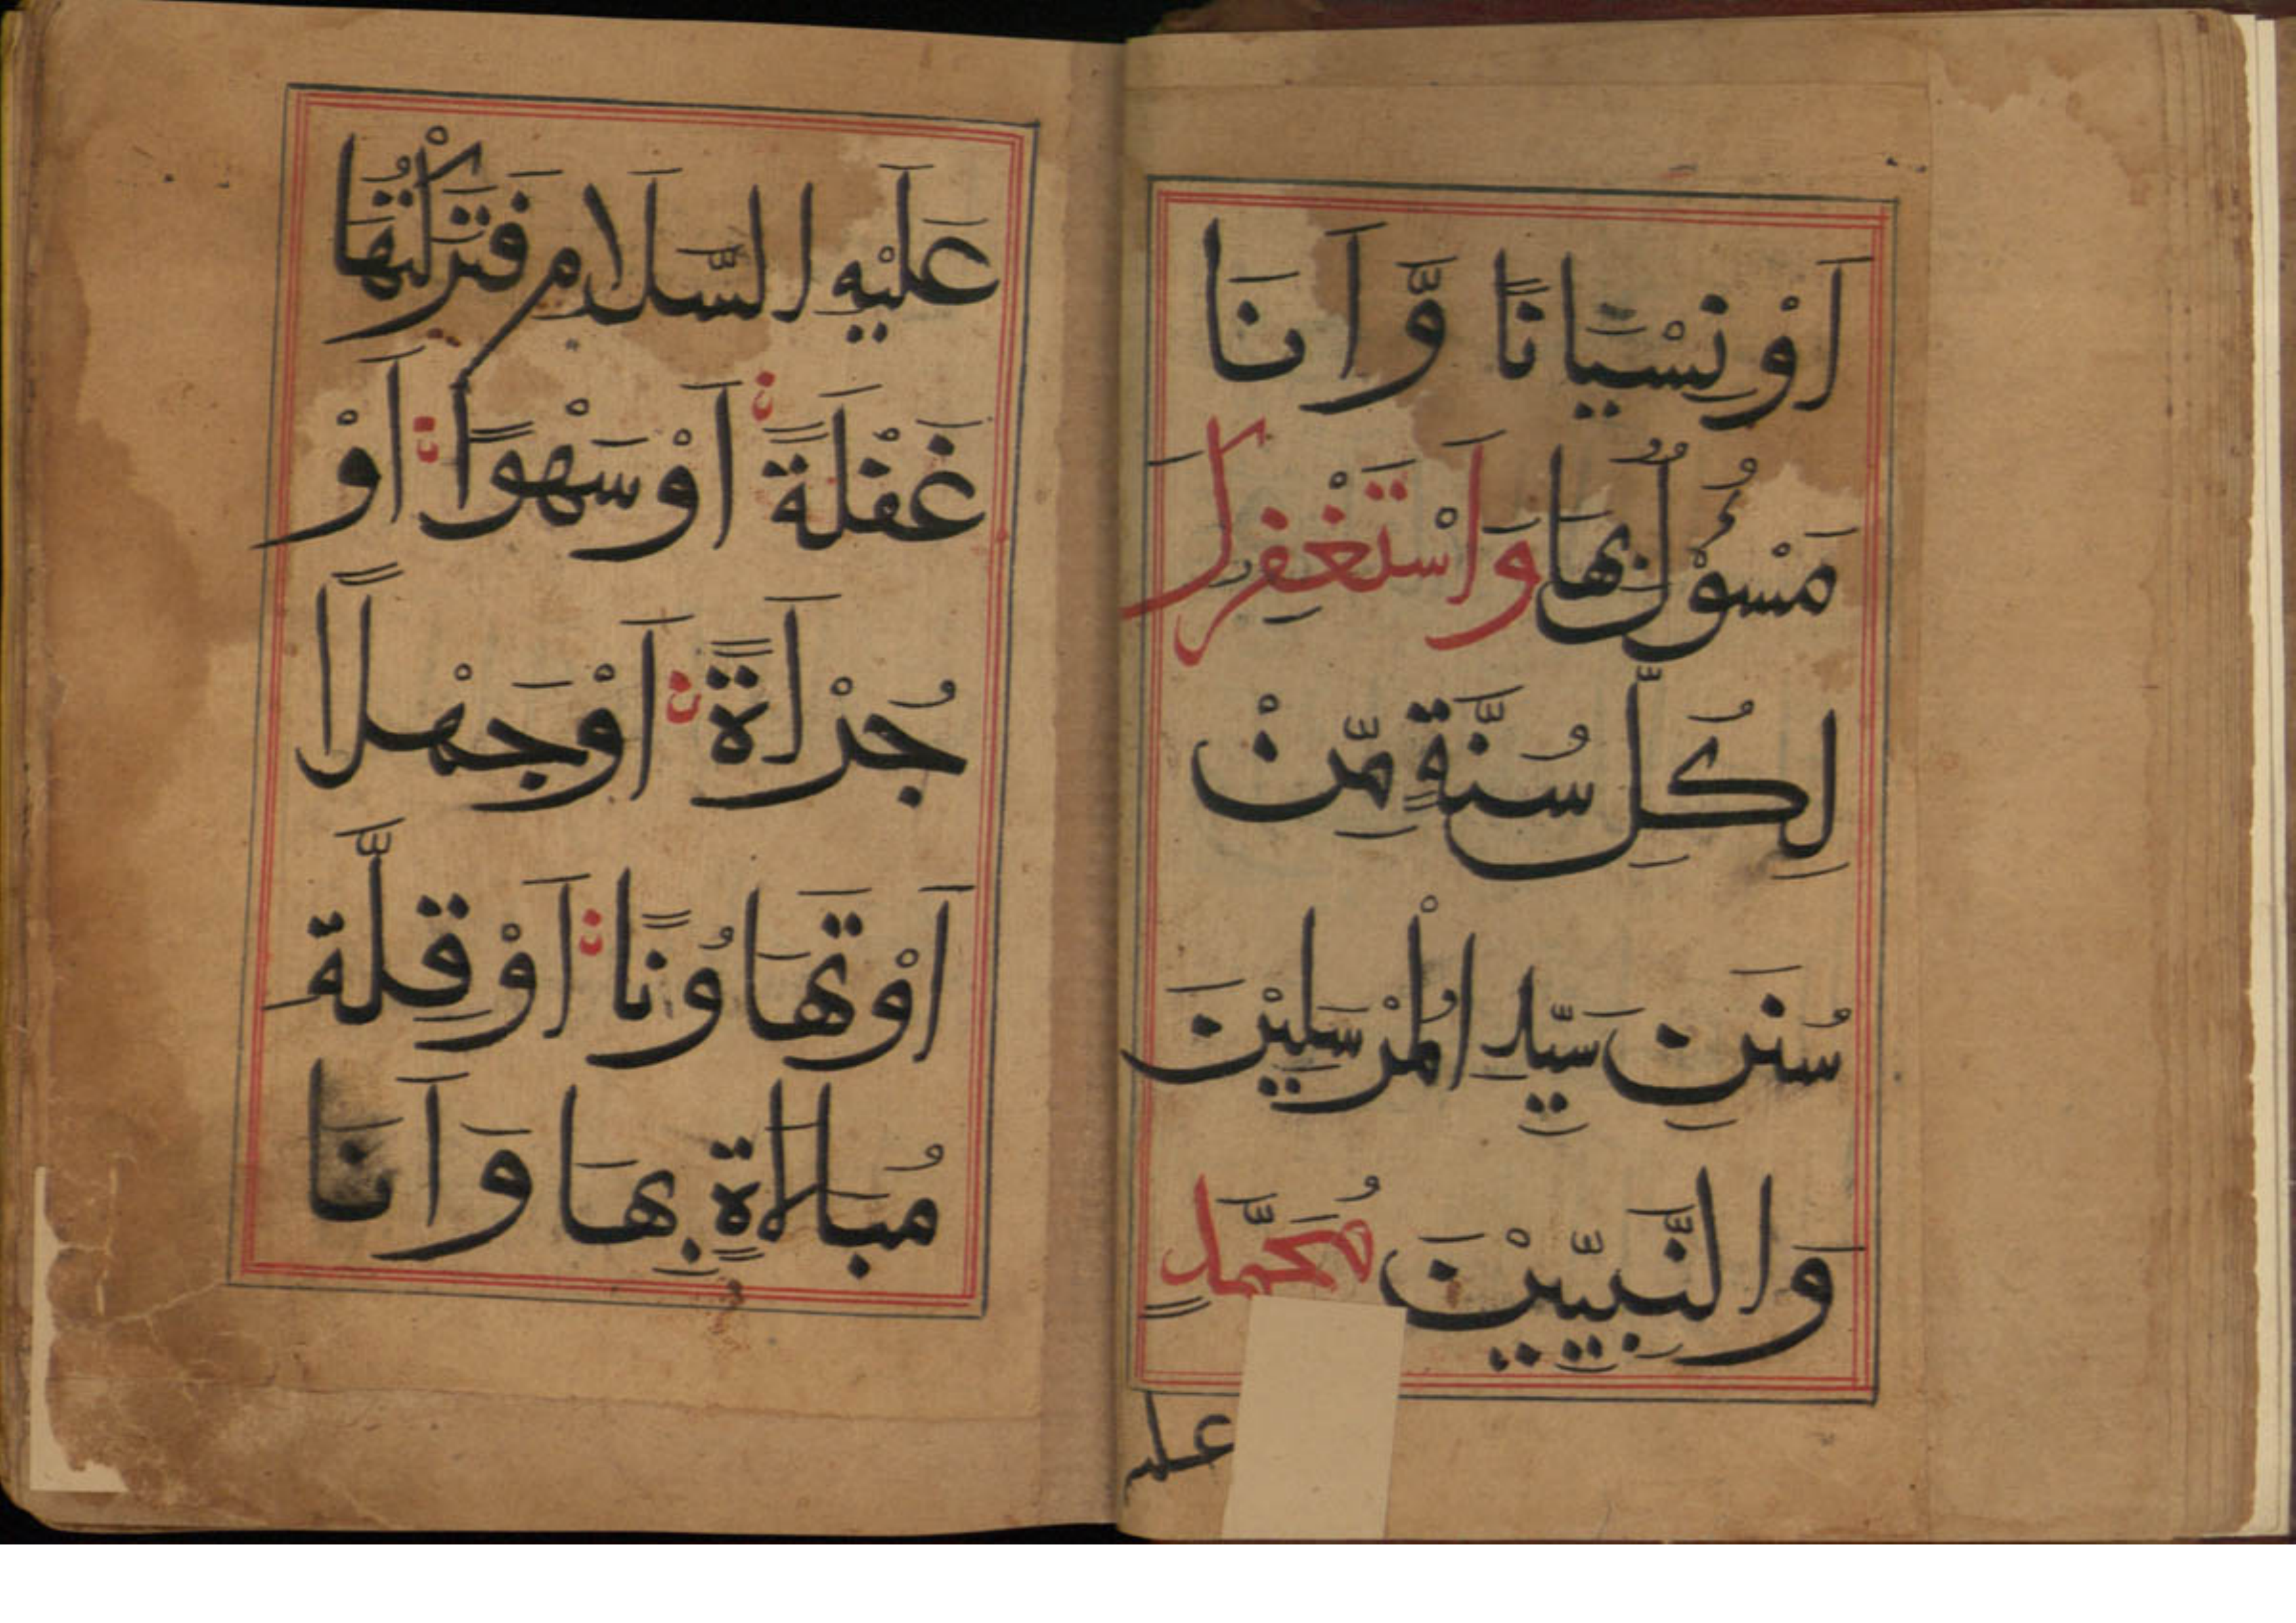 اَوْ نِسْيَانًا وَّاَنَا
مَسْئُوْلٌ بِهَا وَاَسْتَغْفِرُكَ
لِكُلِّ سُنَّةٍ مِّنْ
سُنَنِ سَيِّدِ الْمُرْسَلِيْنَ
وَالنَّبِيِّيْنَ مُحَمَّدٍ
عليه
عَلَيْهِ السَّلَامُ فَتَرَكْتُهَا
غَفْلَةً اَوْ سَهْوًا اَوْ
جُرْاَةً اَوْ جَهْلًا
اَوْ تَهَاوُنًا اَوْ قِلَّةَ
مُبَالَاةٍ بِهَا وَاَنَا